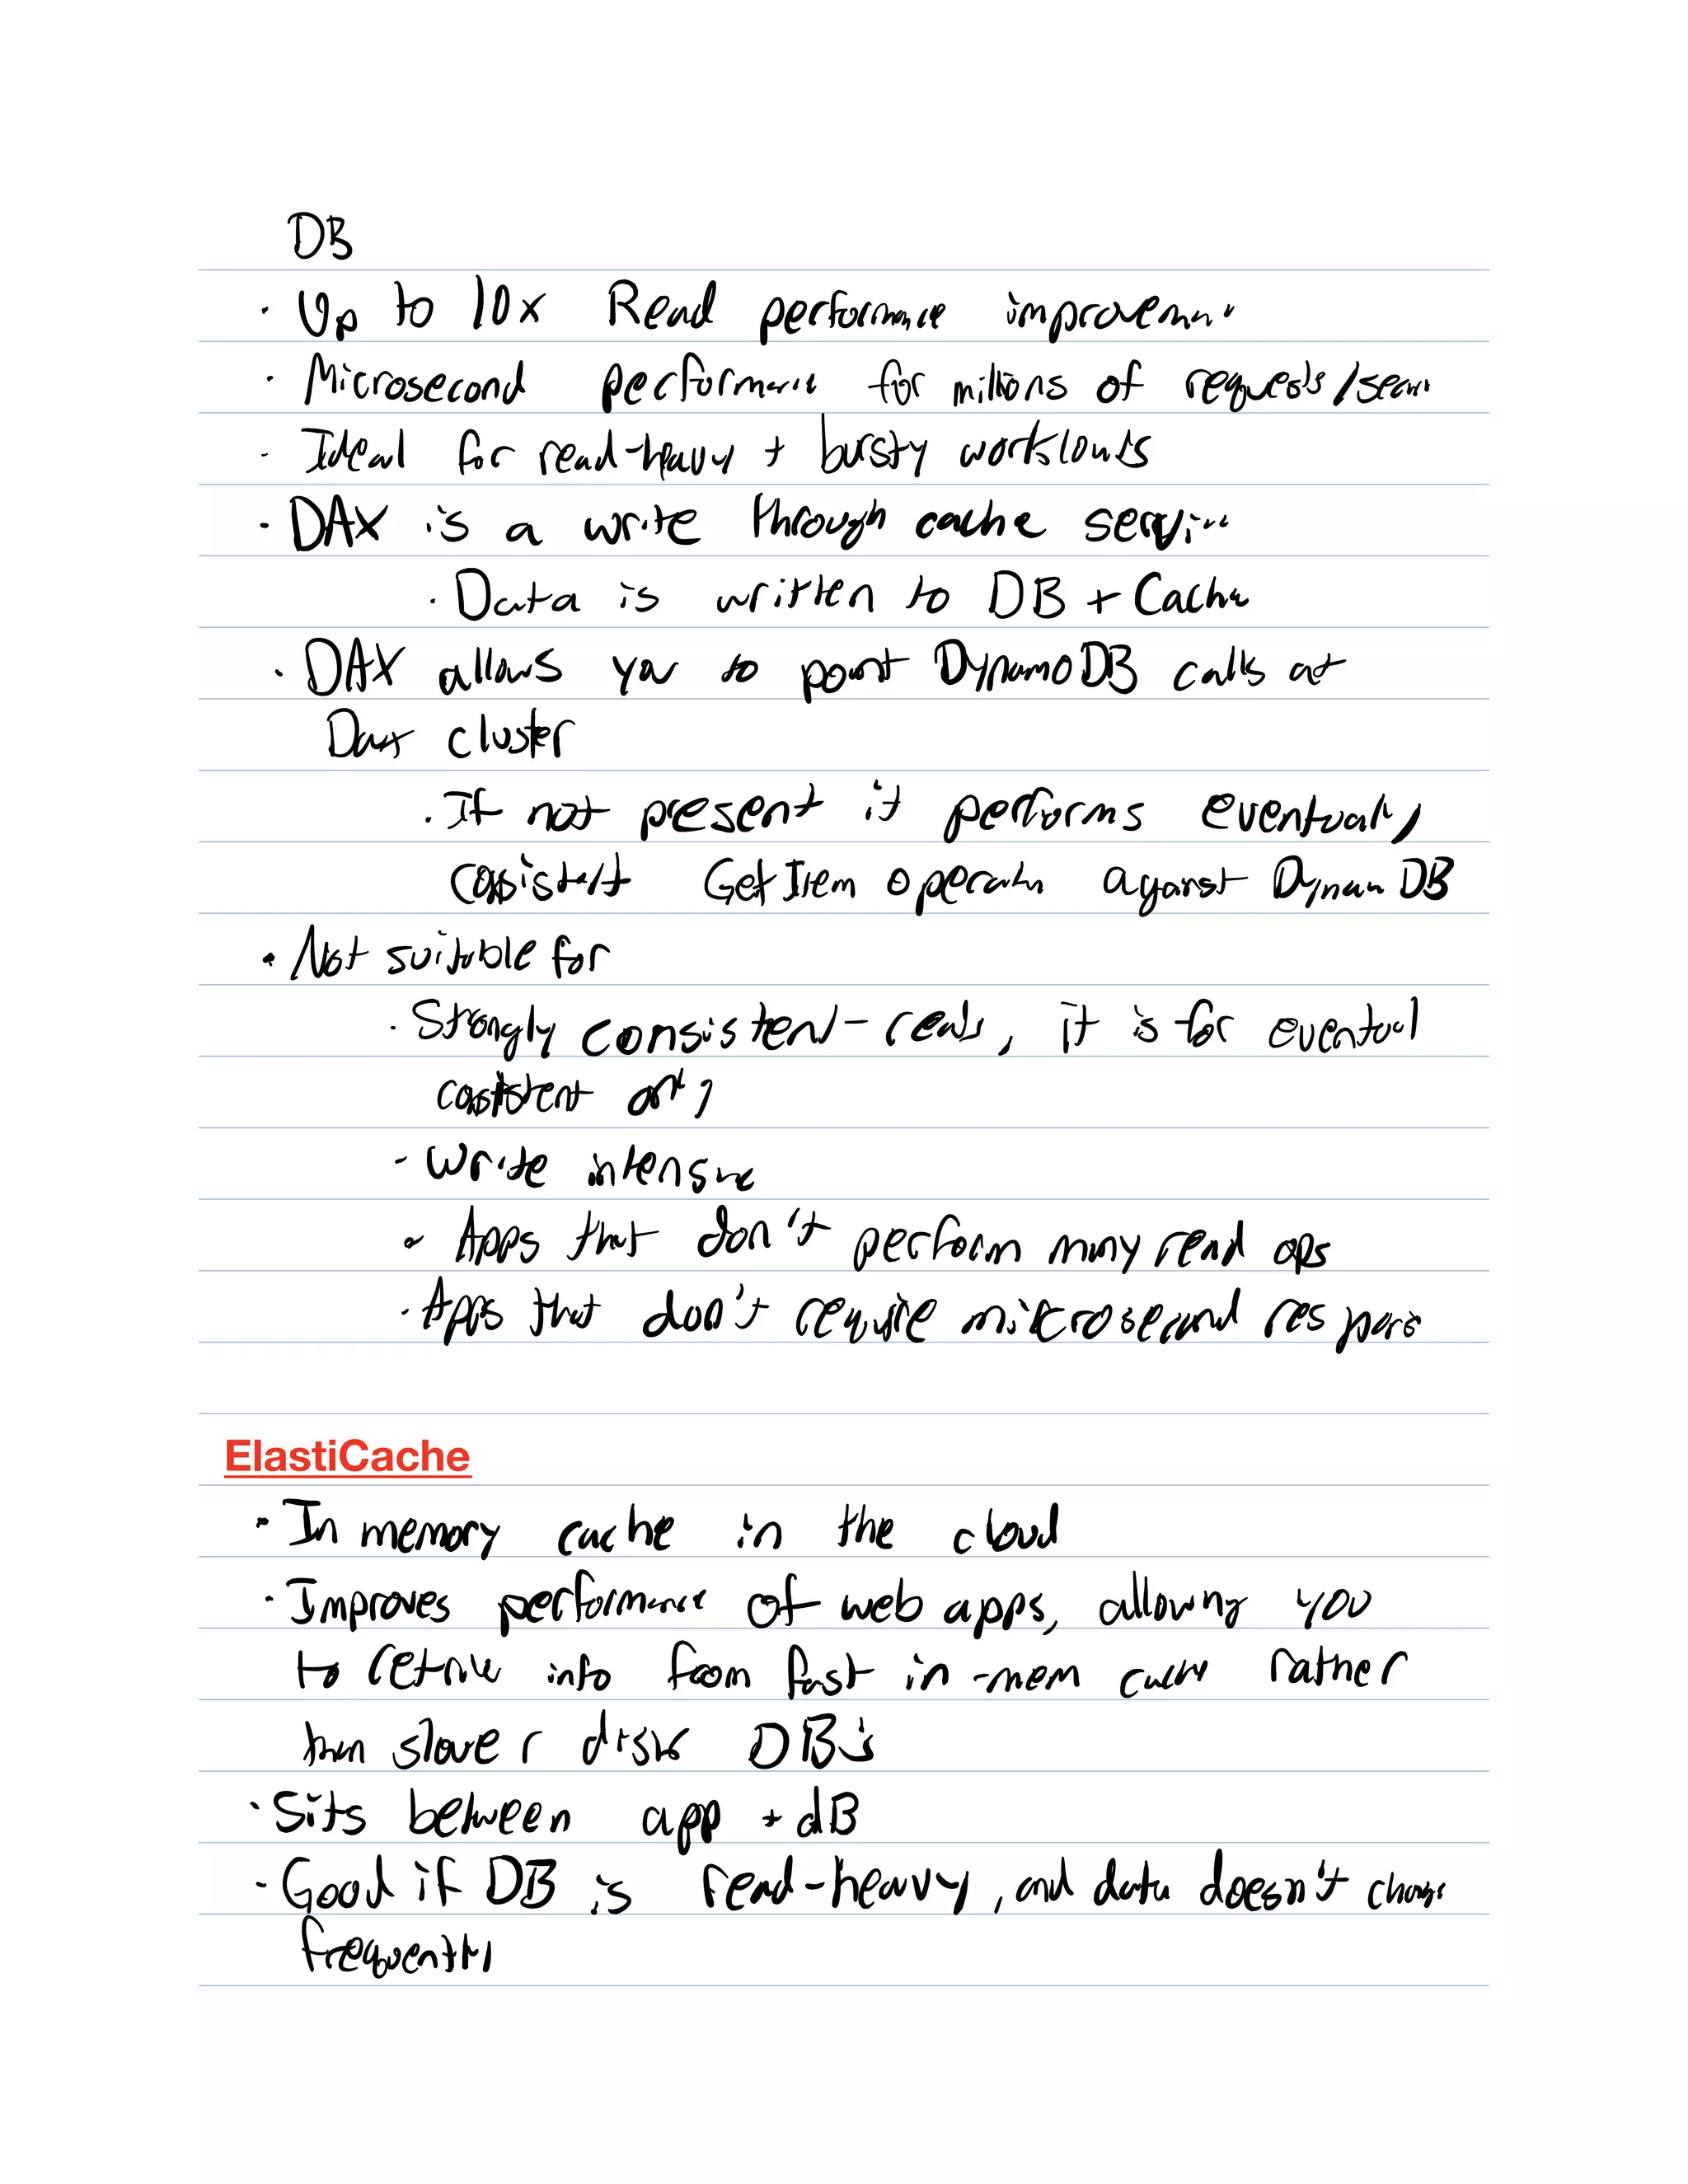 DB
· Up to 10x Read performance improvement
· Microsecond performance for millions of requests/second
· Ideal for read-heavy + bursty workloads
· DAX is a write through cache service
· Data is written to DB + Cache
· DAX allows you to point DynamoDB calls at
Dax cluster
· If not present it performs eventually
consistent GetItem operation against DynamoDB
· Not suitable for
· Strongly consistent-reads, it is for eventual
consistent only
- Write intensive
· Apps that don't perform many read ops
· Apps that don't require microsecond response
ElastiCache
· In memory cache in the cloud
· Improves performance of web apps, allowing you
to retrieve info from fast in-mem cache rather
than slower disk DB's
· Sits between app + dB
· Good if DB is read-heavy, and data doesn't change
frequently